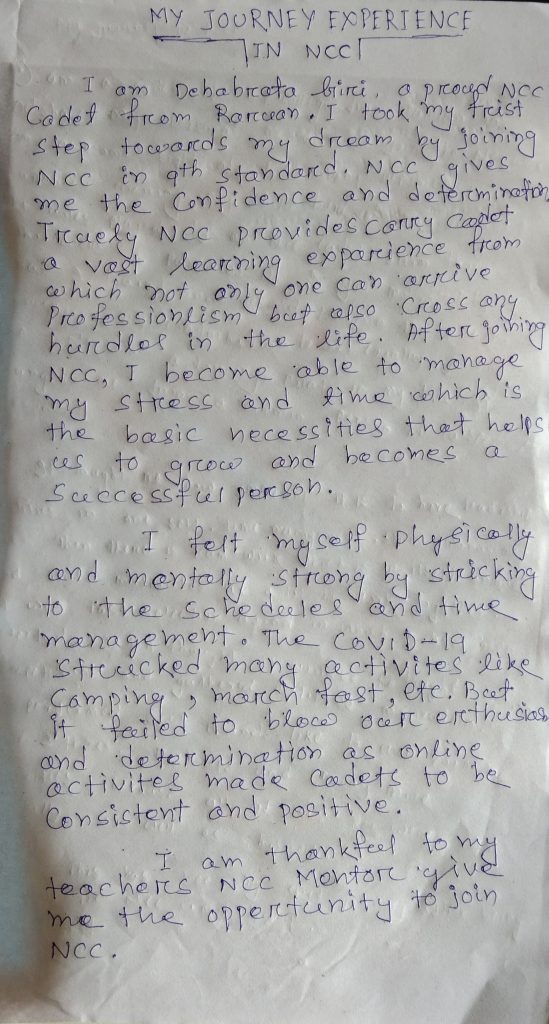 MY JOURNEY EXPERIENCE
IN NCC
I am Debabrata Giri, a proud NCC
Cadet from Raruan. I took my frist
step towards my dream by joining
NCC in 9th standard. NCC gives
me the Confidence and determination
Truely NCC provides carry Cadet
a vast learning exparience from
which not only one can arrive
Professionlism but also Cross any
hurdles in the life. After joining
NCC, I become able to manage
my stress and time which is
the basic necessities that helps
us to grow and becomes a
Successful person.
I felt myself physically
and mentally strong by stricking
to the Schedules and time
management. The COVID-19
Strucked many activites like
Camping, march fast, etc. But
it failed to blow our enthusias
and determination as online
activites made Cadets to be
Consistent and positive.
I am thankful to my
teachers NCC Mentor give
me the oppertunity to join
NCC.